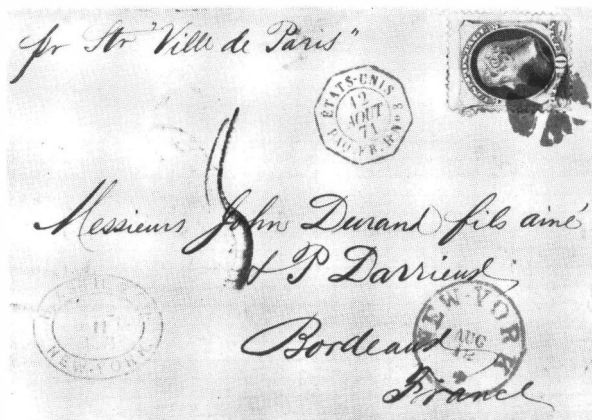 pr Str "Ville de Paris"
ÉTATS-UNIS
12
AOUT
71
PAQ. FR. H No 3
Messieurs John Durand fils ainé
& P Darrieux
Bordeaux
France
NEW-YORK
AUG
12
11
NEW-YORK.